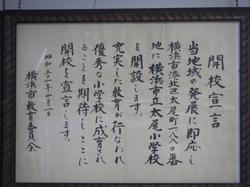 開校宣言
当地域の発展に即応し
横浜市港北区太尾町一八八〇番
地に横浜市立太尾小学校
を開設します。
充実した教育が行なわれ
優秀な小学校に成育され
ることを期待しここに
開校を宣言します。
昭和五十一年四月一日
横浜市教育委員会